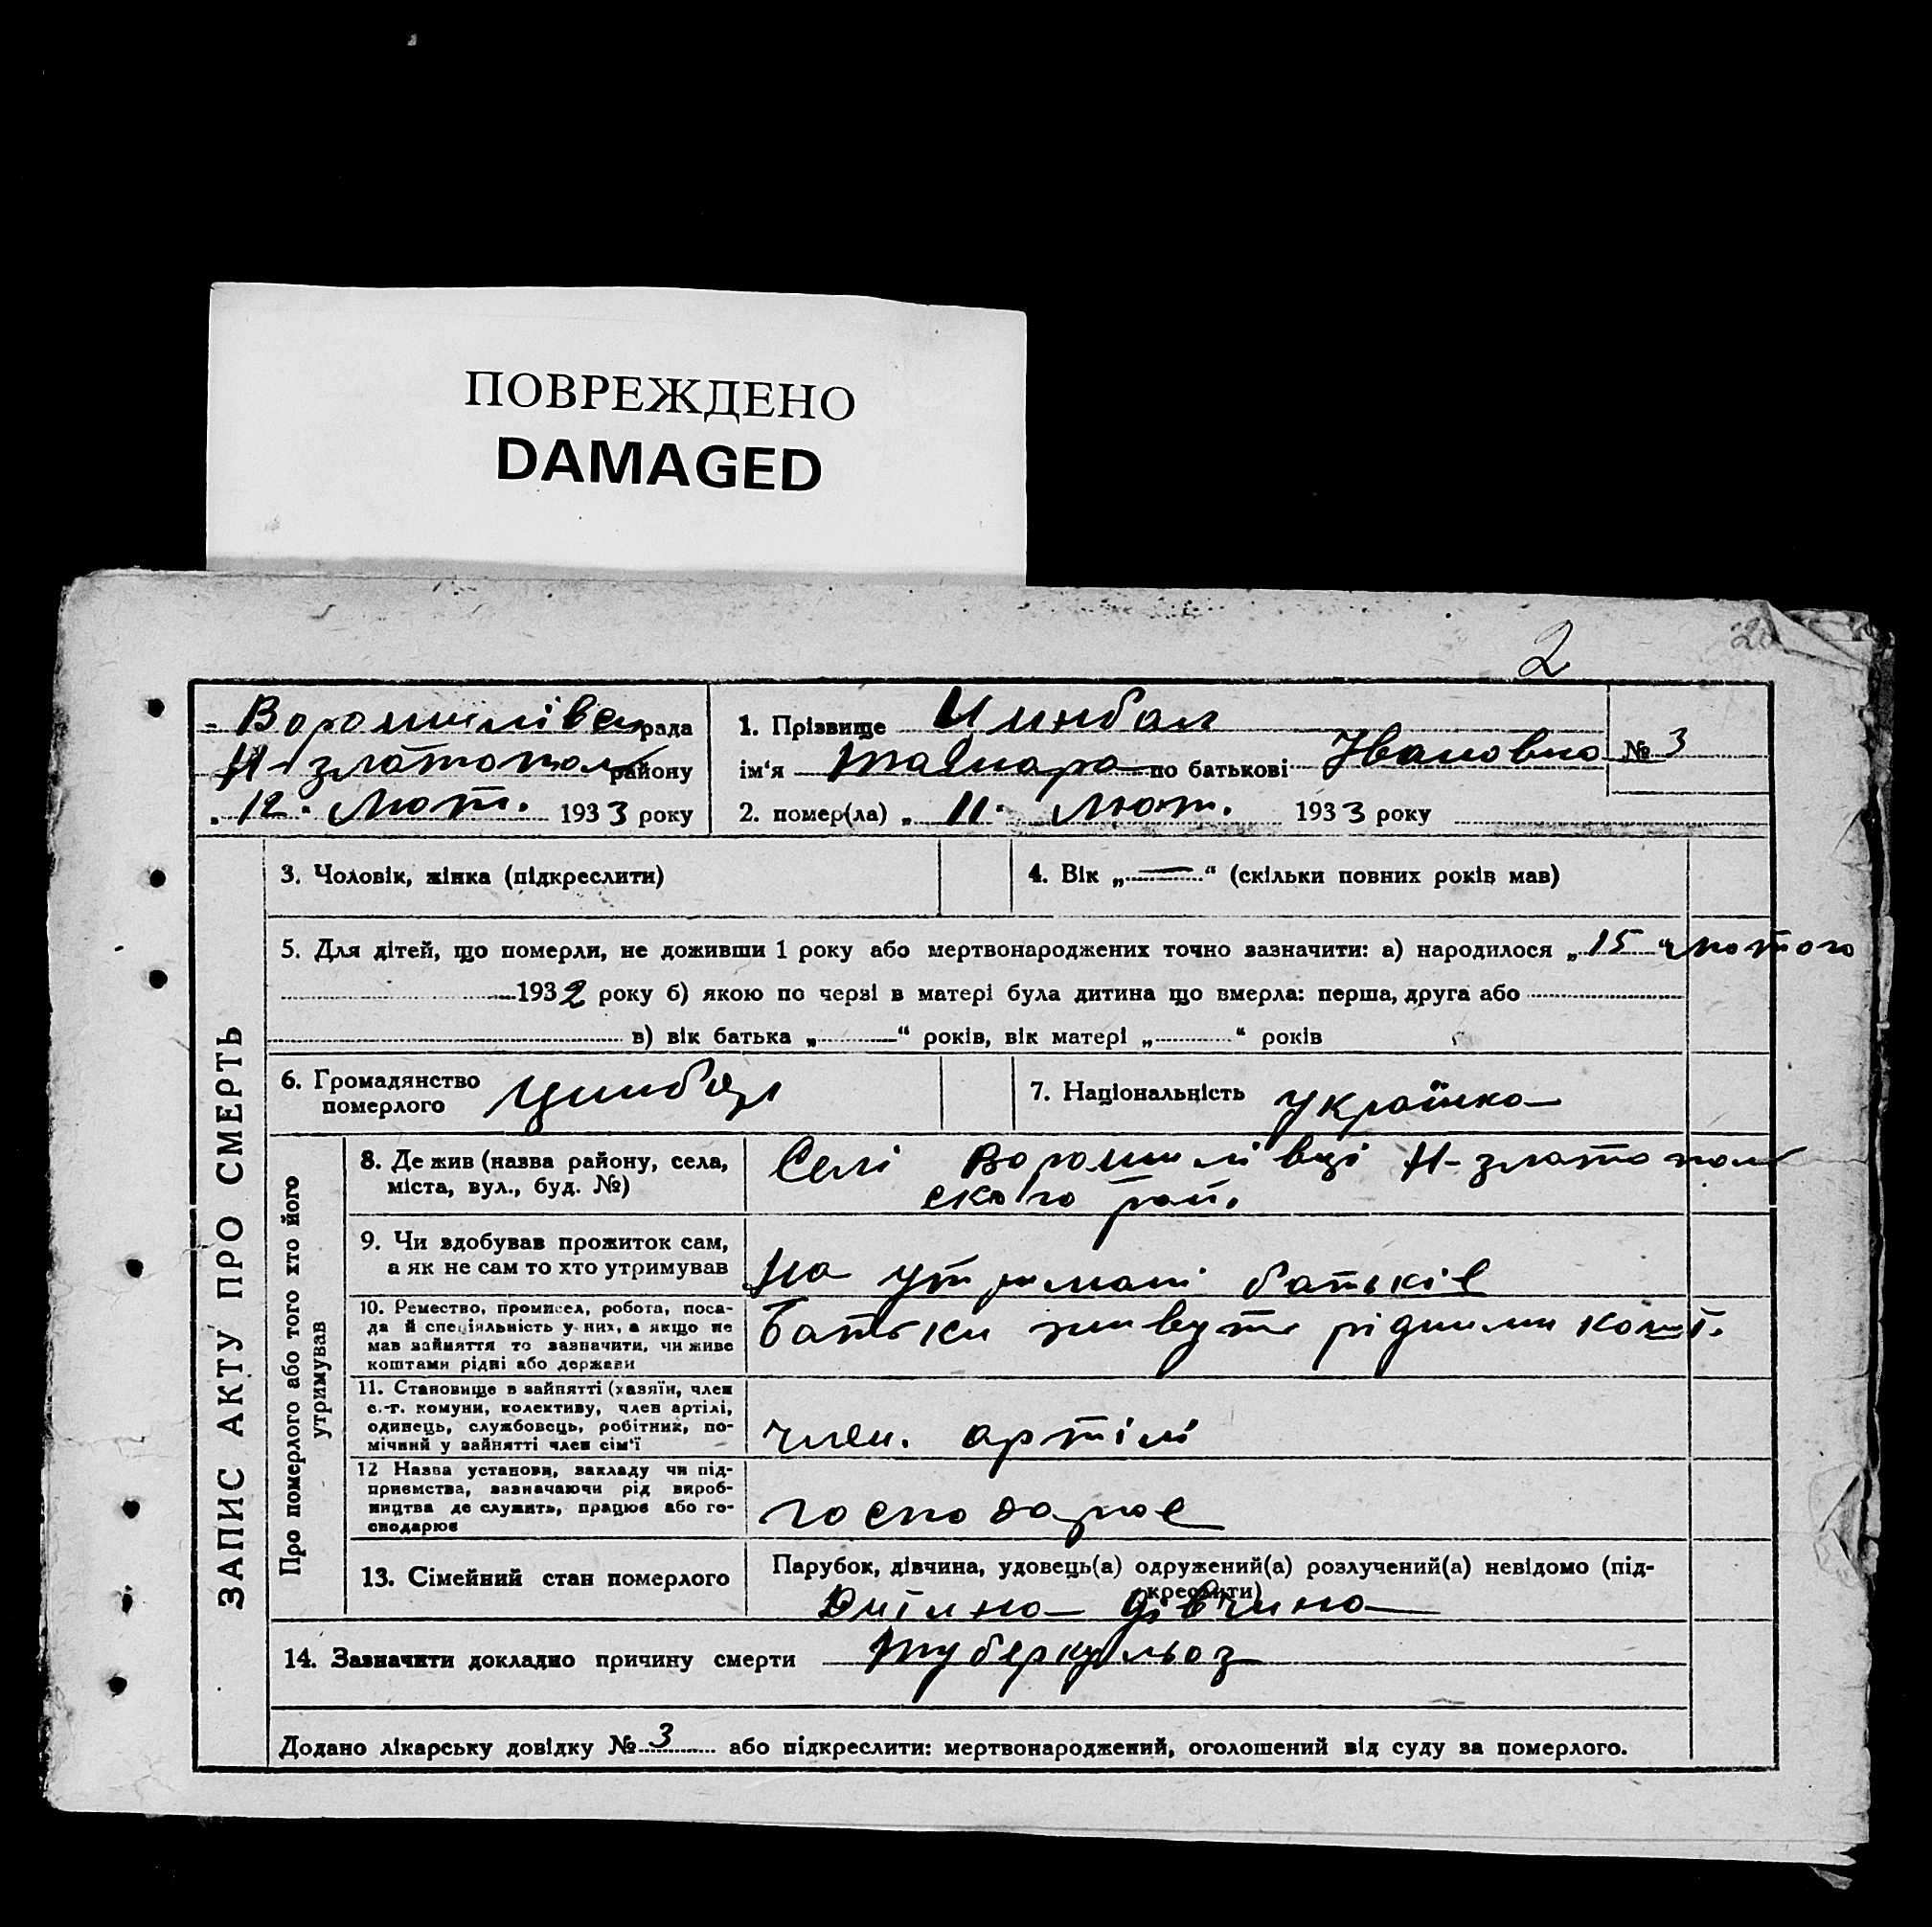 ПОВРЕЖДЕНО
DAMAGED
2
Ворошилівск рада
Н-златопол району
„ 12 " Лют. 1933 року
1. Прізвище
ім'я Тамара по батькові Івановна
№ 3
2. помер(ла) „ 11 " Лют. 1933 року
ЗАПИС АКТУ ПРО СМЕРТЬ
3. Чоловік, жінка (підкреслити)
4. Вік „ — “ (скільки повних років мав)
5. Для дітей, що померли, не доживши 1 року або мертвонароджених точно зазначити: а) народилося „ 15 “ лютого
1932 року б) якою по черзі в матері була дитина що вмерла: перша, друга або
в) вік батька „ “ років, вік матері „ “ років
6. Громадянство
померлого
7. Національність українка
Про померлого або того хто його
утримував
8. Де жив (назва району, села,
міста, вул., буд. №)
Селі Ворошилівці Н-златополь
ского рай.
9. Чи здобував прожиток сам,
а як не сам то хто утримував
На утримані батьків
10. Ремество, промисел, робота, поса-
да й спеціяльність у них, а якщо не
мав зайняття то зазначити, чи живе
коштами рідні або держави
Батьки живуть рідними кошт.
11. Становище в зайнятті (хазяїн, член
с.-г. комуни, колективу, член артілі,
одинець, службовець, робітник, по-
мічний у зайнятті член сім'ї
член. артілі
12 Назва установи, закладу чи під-
приємства, зазначаючи рід вироб-
ництва де служить, працює або го-
сподарює
господарює
13. Сімейний стан померлого
Парубок, дівчина, удовець(а) одружений(а) розлучений(а) невідомо (під-
креслити)
дівчина
14. Зазначити докладно причину смерти Туберкульоз
Додано лікарську довідку № 3 або підкреслити: мертвонароджений, оголошений від суду за померлого.